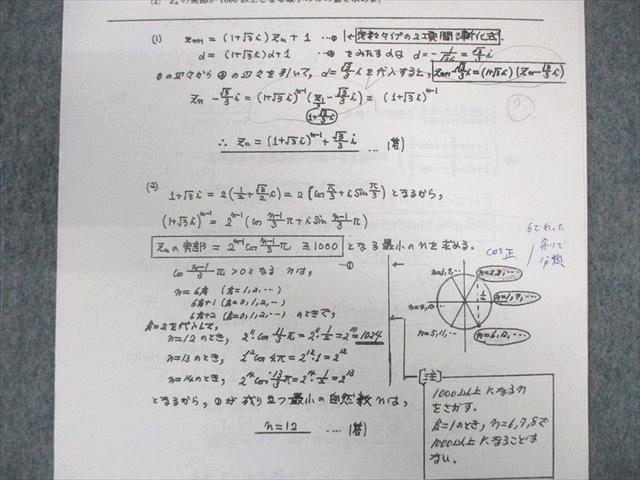 (2) z_nの実部が1000以上となる最小の
(1) z_{n+1} = (1+√3i)z_n + 1 …① ← 定数タイプの2項間漸化式.
α = (1+√3i)α+1 …② をみたすαは α = -1/(√3i) = (√3/3)i
①の辺々から②の辺々を引いて, α = (√3/3)i を代入すると, z_{n+1} - (√3/3)i = (1+√3i)(z_n - (√3/3)i)
z_n - (√3/3)i = (1+√3i)^{n-1}(z_1 - (√3/3)i) = (1+√3i)^{n-1}
1+(√3/3)i
∴ z_n = (1+√3i)^{n-1} + (√3/3)i …(答)
(2)
1+√3i = 2(1/2 + (√3/2)i) = 2(cos π/3 + i sin π/3) となるから,
(1+√3i)^{n-1} = 2^{n-1}(cos (n-1)/3 π + i sin (n-1)/3 π)
z_nの実部 = 2^{n-1} cos (n-1)/3 π ≧ 1000 となる最小のnを求める.
…①
cos (n-1)/3 π > 0 となる nは,
n = 6k (k=1,2,…)
6k+1 (k=0,1,2,…)
6k+2 (k=0,1,2,…) のときで,
k=2を代入して,
n=12のとき, 2^11 cos 11/3 π = 2^11・1/2 = 2^10 = 1024
n=13のとき, 2^12 cos 4π = 2^12・1 = 2^12
n=14のとき, 2^13 cos 13/3 π = 2^13・1/2 = 2^12
となるから, ①が成り立つ最小の自然数nは,
n=12 ……(答)
cos 正
6でわった
n=2,8,…
n=1,7,…
n=6,12,…
n=5,11,…
1/2
[注]
1000以上になるn
をさがす.
k=1のとき, n=6,7,8で
1000以上になることは
ない.